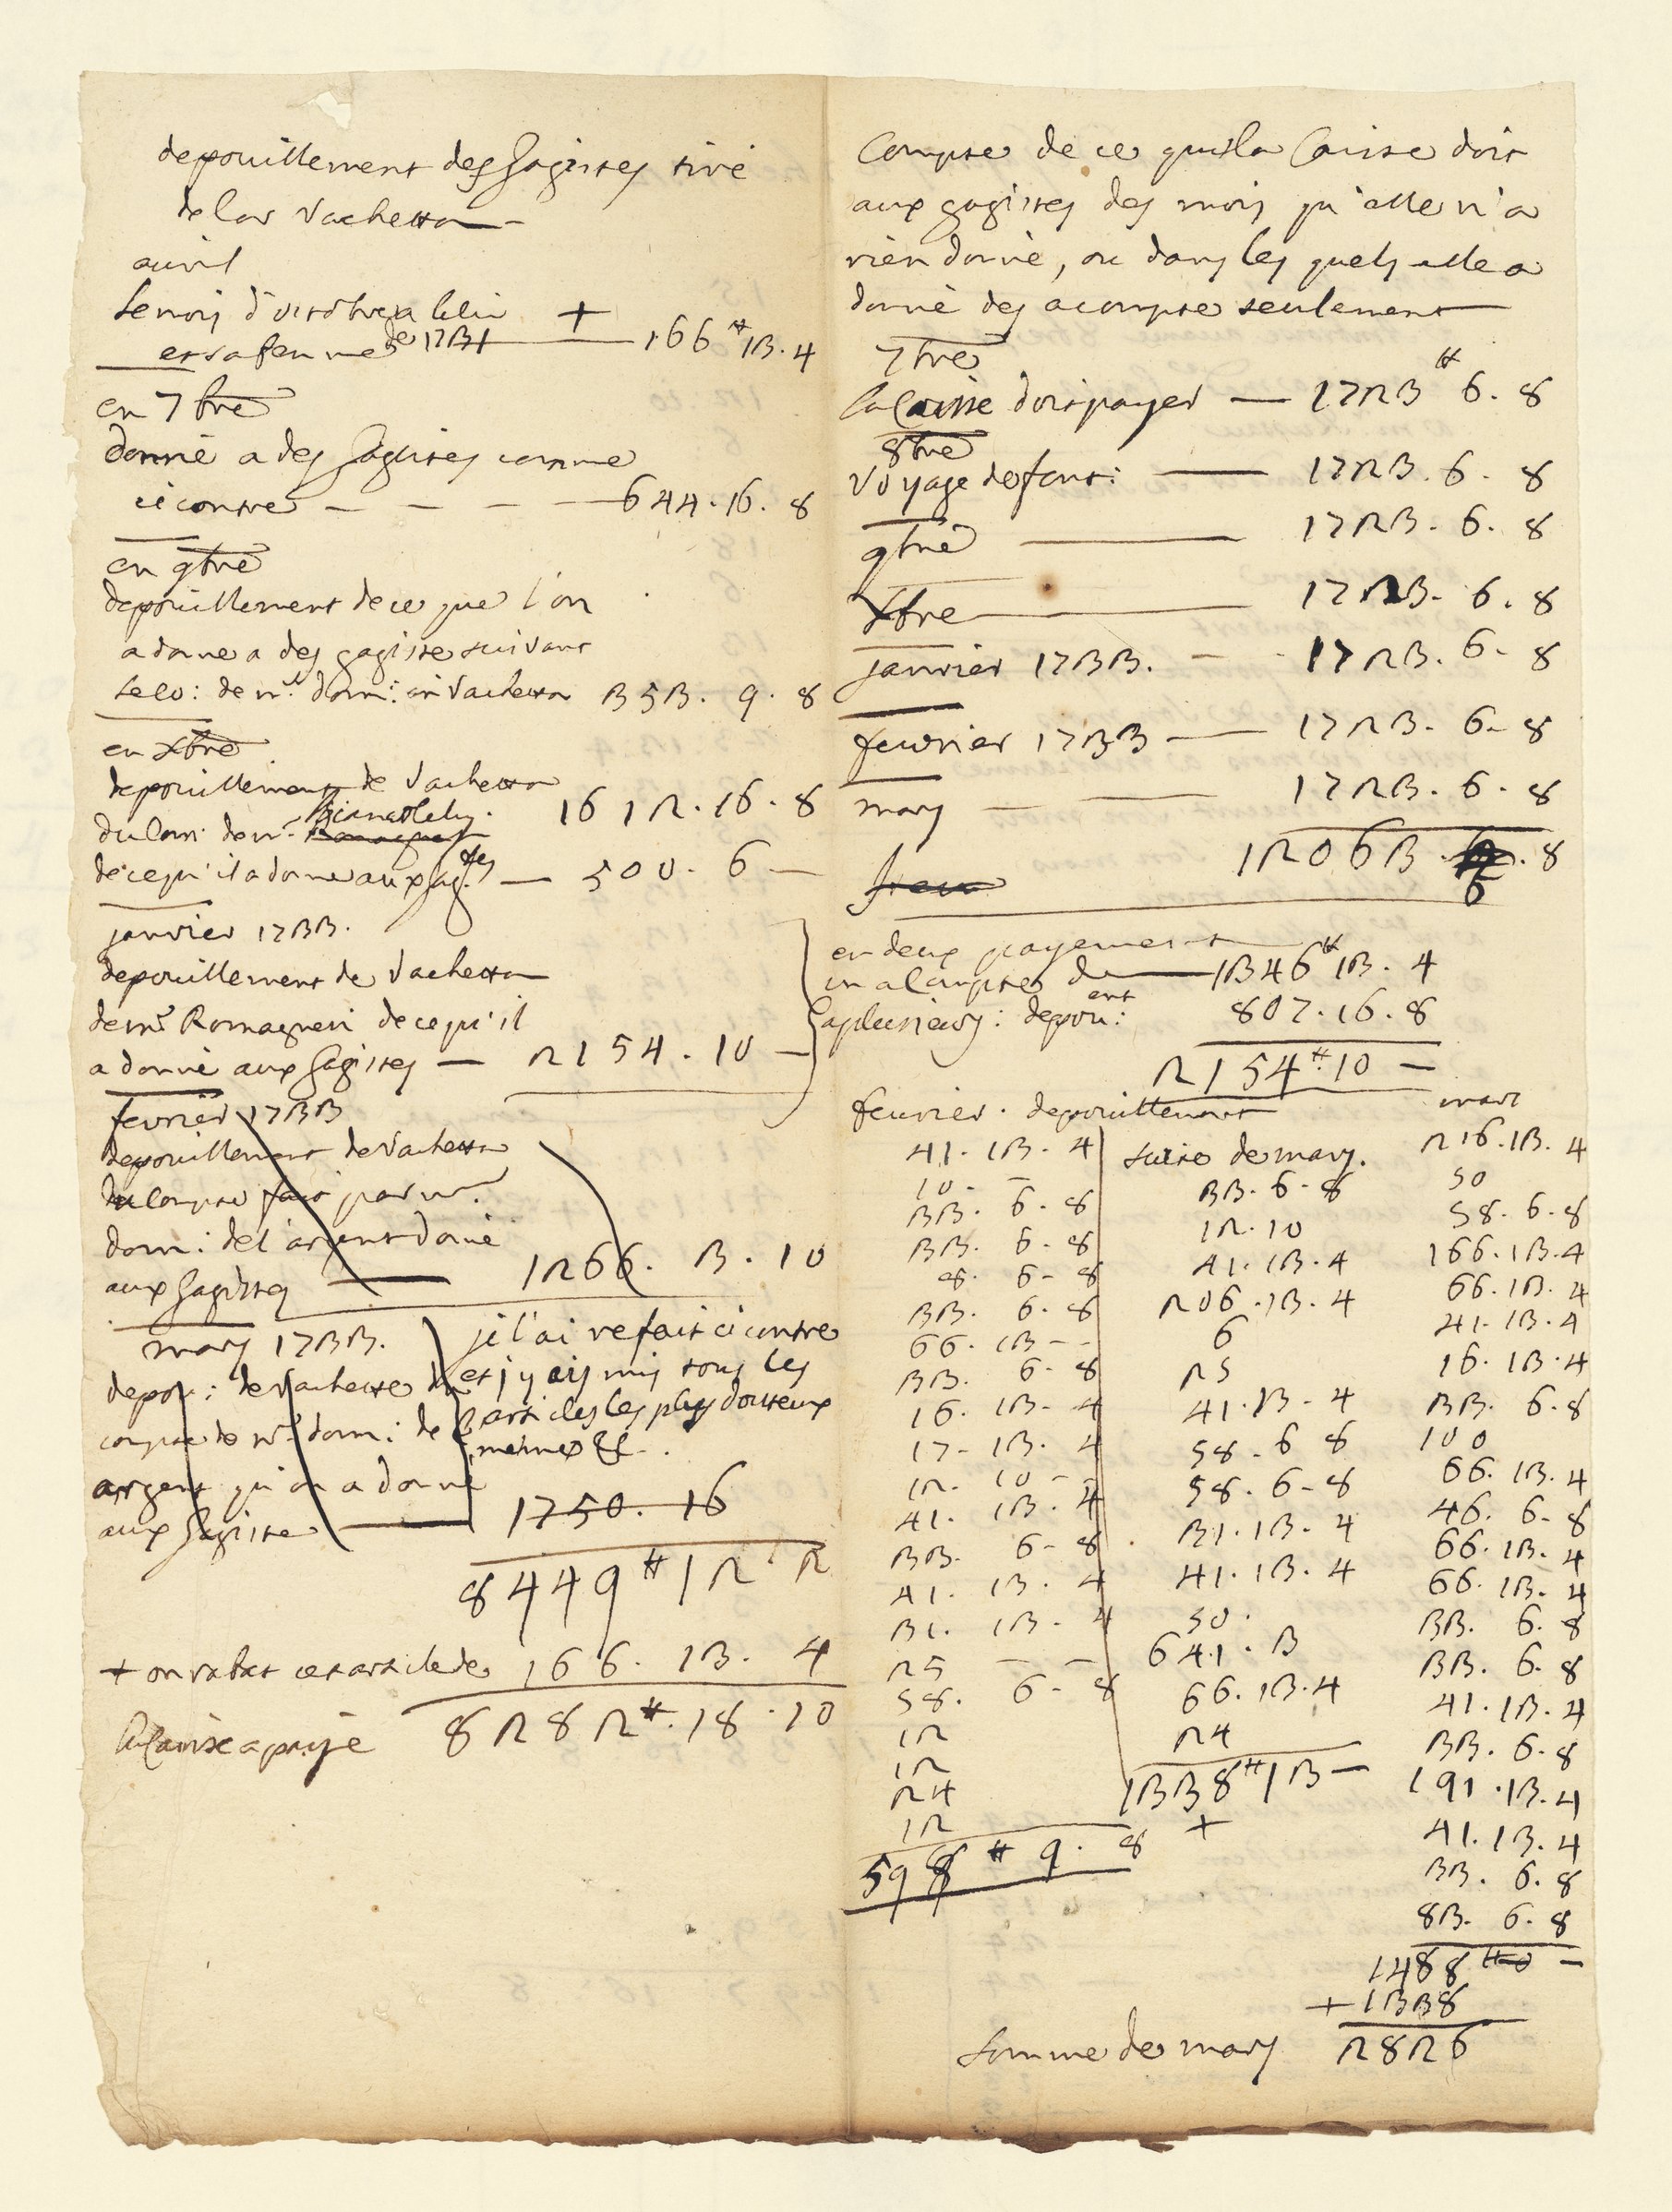 depouillement des Gagistes tiré
de las Vachetta
avril
le mois d'octobre a lelio
et sa femme de 1731 + 166# 13. 4
en 7bre
donné a des Gagistes comme
ci contre - - - - 644. 16. 8
en 9bre
depouillement de ce que l'on
a donné a des gagiste suivant
le co: de mr. dom: en Vachetta 353. 9. 8
en Xbre
depouillement de Vachetta
du com: de mr. 1612. 16. 8
de ce qu'il a donné aux gag.tes — 500. 6 —
janvier 1733.
depouillement de Vachetta
de mr. Romagnesi de ce qu'il
a donné aux Gagistes — 2154. 10 —
fevrier 1733
depouillement de Vachetta
du Compte fait par mr.
dom: de l'argent donné
aux Gagistes — 1266. 3. 10
mars 1733.
depou: de Vachette du
compte de mr. dom: de l'
argent qu'on a donné
aux Gagiste — 1750. 16
je l'ai refait ci contre
et j'y ais mis tous les
articles les plus douteux
mêmes &c.
8449# 12. 2
+ on rabat cet article de 166. 13. 4
la Caisse a payé 8282#. 18. 10
Compte de ce que la Caisse doit
aux gagistes des mois qu'elle n'a
rien donné, ou dans les quels elle a
donné des acompte seulement
7bre
la Caisse doit payer — 1723# 6. 8
8bre
Voyage de font: — 1723. 6. 8
9bre — 1723. 6. 8
Xbre — 1723. 6. 8
janvier 1733. - - 1723. 6. 8
fevrier 1733 — 1723. 6. 8
mars — — 1723. 6. 8
12063. 6. 8
en deux payement
un a Compte de — 1346# 13. 4
a plusieurs: depou:ent 807. 16. 8
2154#. 10 —
fevrier. depouillement
41. 13. 4
10 - -
33. 6. 8
33. 6. 8
8. 6. 8
33. 6. 8
66. 13 - -
33. 6. 8
16. 13. 4
17. 13. 4
12. 10 - -
41. 13. 4
33. 6. 8
41. 13. 4
31. 13. 4
25 — —
58. 6. 8
12
12
24
12
598# 9. 8
suite de mars.
33. 6. 8
12. 10
41. 13. 4
206. 13. 4
6
25
41. 13. 4
58. 6 8
58. 6. 8
31. 13. 4
41. 13. 4
50.
641. 3
66. 13. 4
24
1338# 13 —
+
mars
216. 13. 4
50
58. 6. 8
166. 13. 4
66. 13. 4
41. 13. 4
16. 13. 4
33. 6. 8
100
66. 13. 4
46. 6. 8
66. 13. 4
66. 13. 4
33. 6. 8
33. 6. 8
41. 13. 4
33. 6. 8
191. 13. 4
41. 13. 4
33. 6. 8
83. 6. 8
1488# 0 —
+ 1338
Somme de mars 2826